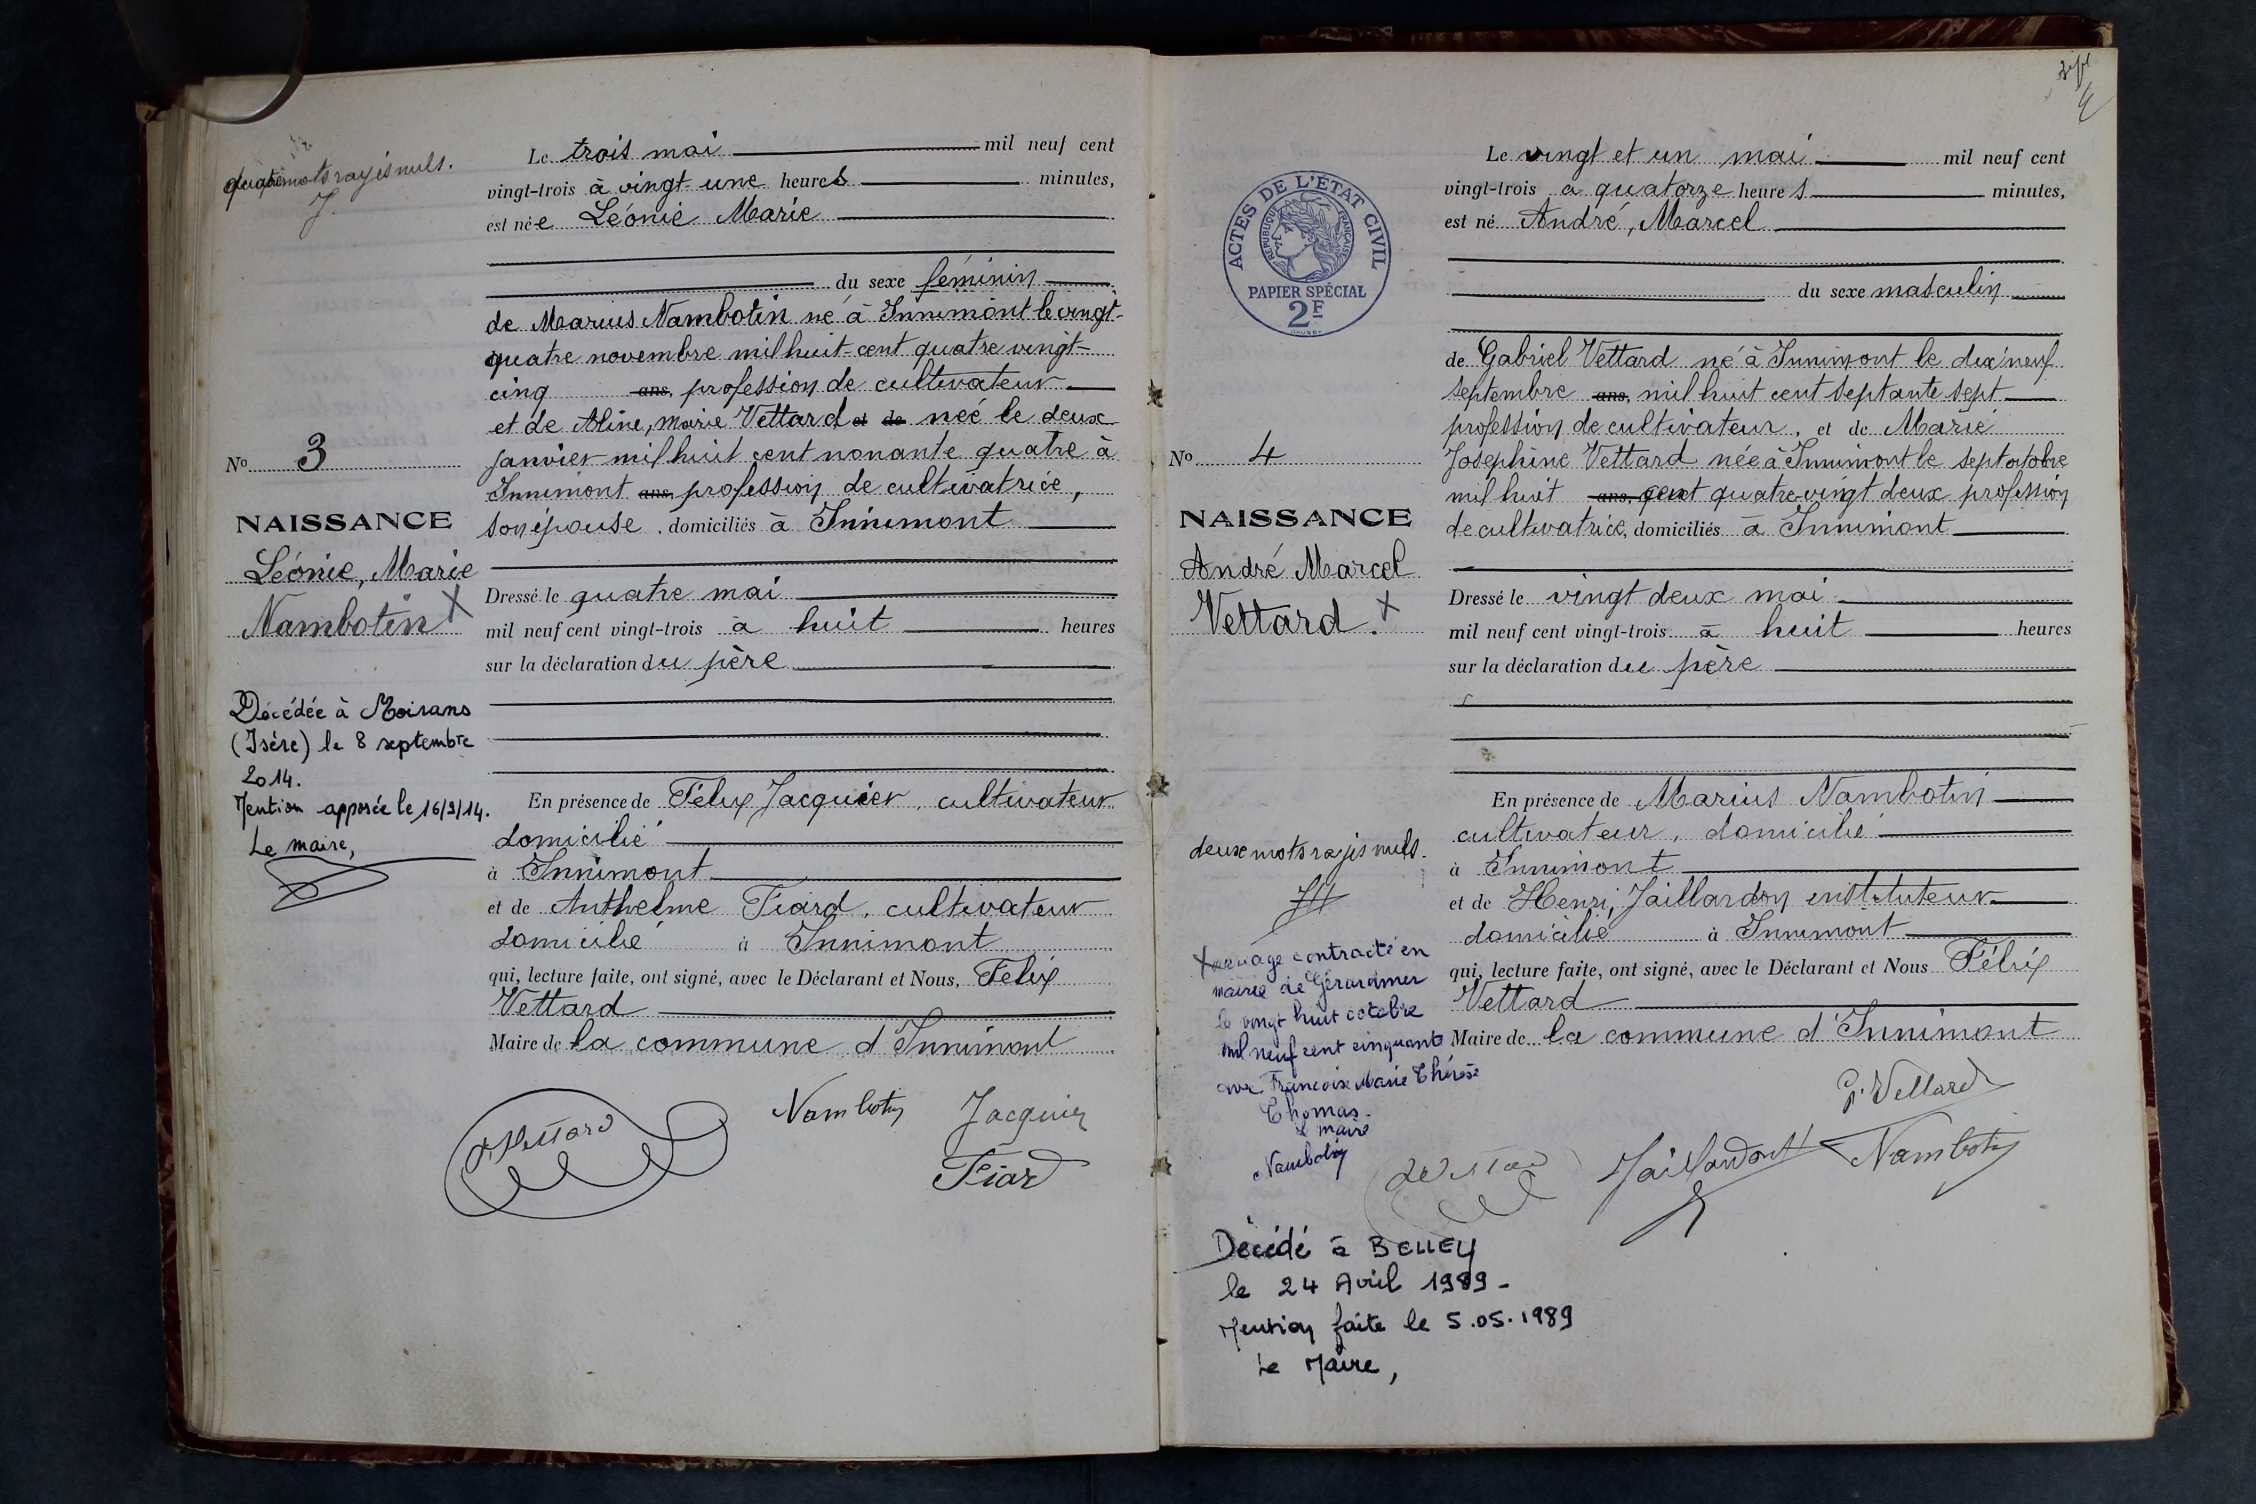 quatre mots rayés nuls.
J.
Le trois mai mil neuf cent
vingt-trois à vingt-une heures minutes,
est née Léonie Marie
du sexe féminin
de Marius Nambotin né à Innimont le vingt-
quatre novembre mil huit-cent quatre vingt-
cinq ans, profession de cultivateur
et de Aline, Marie Vettard et de née le deux
janvier mil huit cent nonante quatre à
Innimont ans, profession de cultivatrice,
son épouse, domiciliés à Innimont
No 3
NAISSANCE
Léonie, Marie
Nambotin X
Dressé le quatre mai
mil neuf cent vingt-trois à huit heures
sur la déclaration du père
Décédée à Moirans
(Isère) le 8 septembre
2014.
Mention apposée le 16/9/14.
Le maire,
En présence de Félix Jacquier, cultivateur
domicilié
à Innimont
et de Anthelme Fiard, cultivateur
domicilié à Innimont
qui, lecture faite, ont signé, avec le Déclarant et Nous, Félix
Vettard
Maire de la commune d'Innimont
Vettard
Nambotin
Jacquier
Fiard
ACTES DE L'ÉTAT CIVIL
RÉPUBLIQUE FRANÇAISE
PAPIER SPÉCIAL
2F
Le vingt et un mai mil neuf cent
vingt-trois à quatorze heures minutes,
est né André, Marcel
du sexe masculin
de Gabriel Vettard né à Innimont le dix neuf
septembre ans, mil huit cent septante sept
profession de cultivateur, et de Marie
Josephine Vettard née à Innimont le sept octobre
mil huit ans, cent quatre-vingt deux profession
de cultivatrice, domiciliés à Innimont
No 4
NAISSANCE
André Marcel
Vettard. X
Dressé le vingt deux mai
mil neuf cent vingt-trois à huit heures
sur la déclaration du père
En présence de Marius Nambotin
cultivateur, domicilié
à Innimont
et de Henri, Jaillardon instituteur
domicilié à Innimont
qui, lecture faite, ont signé, avec le Déclarant et Nous Félix
Vettard
Maire de la commune d'Innimont
deux mots rayés nuls.
mariage contracté en
mairie de Gérardmer
le vingt huit octobre
mil neuf cent cinquante
avec Françoise Marie Thérèse
Thomas.
Le maire
Nambotin
G. Vettard
Jaillardon
Nambotin
Décédé à BELLEY
le 24 Avril 1989 -
Mention faite le 5.05.1989
Le Maire,